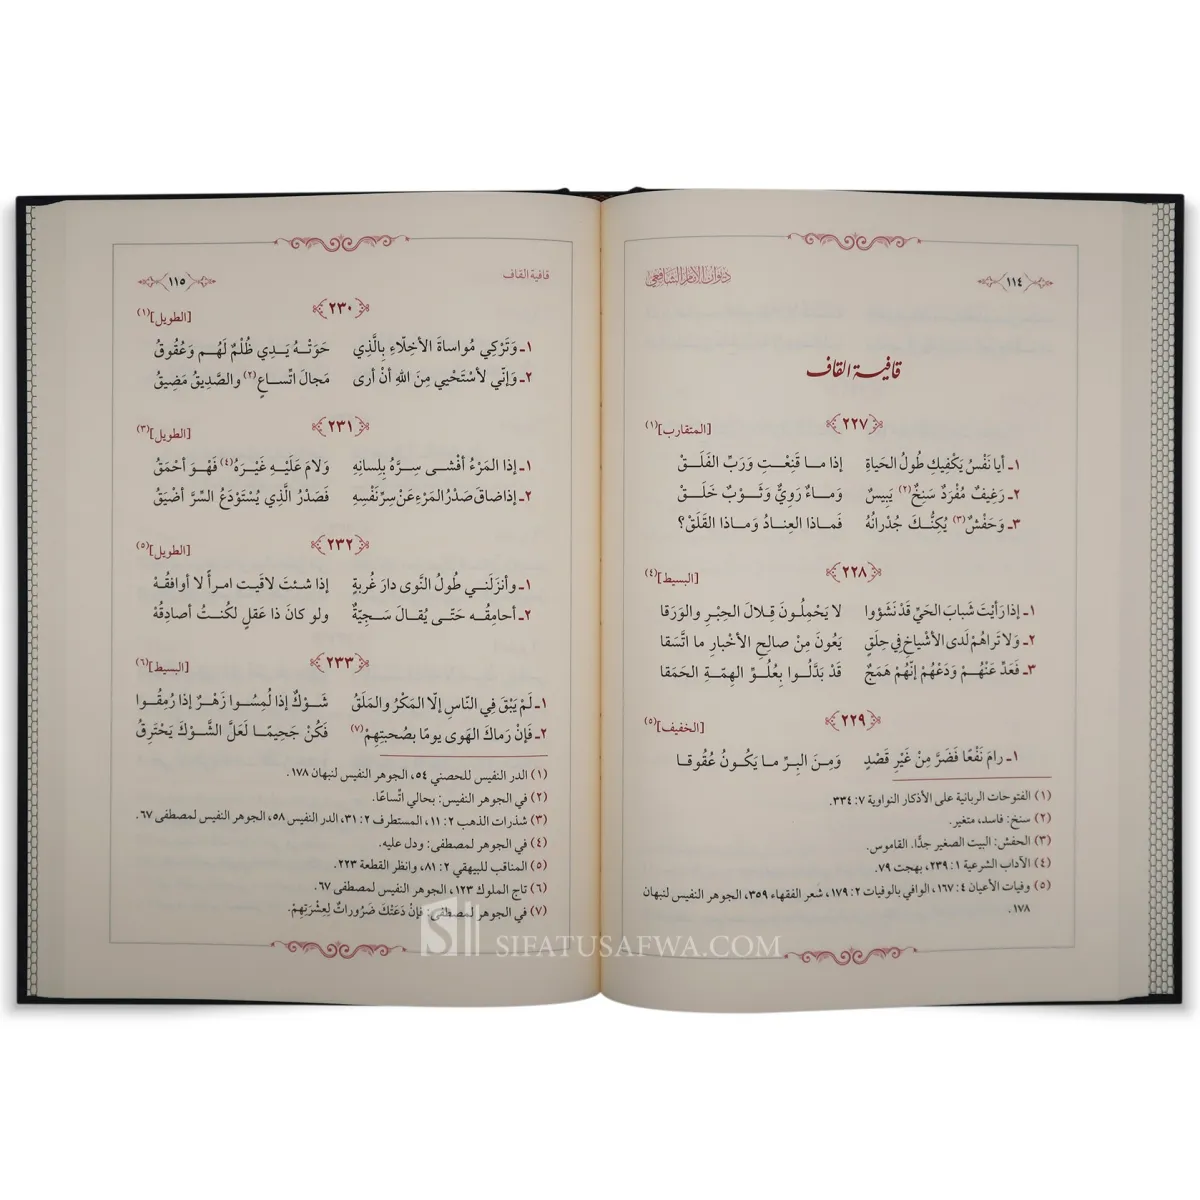 ديوان الإمام الشافعي
١١٤
قافية القاف
٢٢٧
[المتقارب](١)
١ـ أيا نَفْسُ يَكْفِيكِ طُولُ الحَياةِ إذا ما قَنِعْتِ وَرَبِّ الفَلَقْ
٢ـ رَغِيفٌ مُفْرَدٌ سَنِخٌ(٢) يَبِيسٌ وَماءٌ رَوِيٌّ وَثَوْبٌ خَلَقْ
٣ـ وَحَفْشٌ(٣) يُكِنُّكَ جُدْرانُهُ فَماذا العِنادُ وَماذا القَلَقْ؟
٢٢٨
[البسيط](٤)
١ـ إذا رَأيْتَ شَبابَ الحَيِّ قَدْ نَشَؤوا لا يَحْمِلُونَ قِلالَ الحِبْرِ والوَرَقا
٢ـ وَلا تَراهُمْ لَدى الأشْياخِ في حِلَقٍ يَعُونَ مِنْ صالِحِ الأخْبارِ ما اتَّسَقا
٣ـ فَعَدِّ عَنْهُمْ وَدَعْهُمْ إنَّهُمْ هَمَجٌ قَدْ بَدَّلُوا بِعُلُوِّ الهِمَّةِ الحَمَقا
٢٢٩
[الخفيف](٥)
١ـ رامَ نَفْعًا فَضَرَّ مِنْ غَيْرِ قَصْدٍ وَمِنَ البِرِّ ما يَكُونُ عُقُوقا
(١) الفتوحات الربانية على الأذكار النواوية ٧: ٣٣٤.
(٢) سنخ: فاسد، متغير.
(٣) الحفش: البيت الصغير جدًّا. القاموس.
(٤) الآداب الشرعية ١: ٢٣٩، بهجت ٧٩.
(٥) وفيات الأعيان ٤: ١٦٧، الوافي بالوفيات ٢: ١٧٩، شعر الفقهاء ٣٥٩، الجوهر النفيس لنبهان
١٧٨.
قافية القاف
١١٥
٢٣٠
[الطويل](١)
١ـ وَتَرْكِي مُواساةَ الأخِلّاءِ بِالَّذِي حَوَتْهُ يَدِي ظُلْمٌ لَهُم وَعُقُوقُ
٢ـ وَإنّي لأسْتَحْيي مِنَ اللهِ أنْ أرى مَجالَ اتِّساعٍ(٢) والصَّدِيقُ مَضِيقُ
٢٣١
[الطويل](٣)
١ـ إذا المَرْءُ أفْشى سِرَّهُ بِلِسانِهِ وَلامَ عَلَيْهِ غَيْرَهُ(٤) فَهْوَ أحْمَقُ
٢ـ إذا ضاقَ صَدْرُ المَرْءِ عَنْ سِرِّ نَفْسِهِ فَصَدْرُ الَّذِي يُسْتَوْدَعُ السِّرَّ أضْيَقُ
٢٣٢
[الطويل](٥)
١ـ وأنزَلَني طُولُ النَّوى دارَ غُربةٍ إذا شئتَ لاقَيت امرأً لا أوافقُهْ
٢ـ أحامِقُه حَتّى يُقالَ سَجِيّةٌ ولو كانَ ذا عَقلٍ لكُنتُ أصادِقُهْ
٢٣٣
[البسيط](٦)
١ـ لَمْ يَبْقَ فِي النّاسِ إلّا المَكْرُ والمَلَقُ شَوْكٌ إذا لُمِسُوا زَهْرٌ إذا رُمِقُوا
٢ـ فَإنْ رَماكَ الهَوى يومًا بصُحبتِهِمْ(٧) فَكُنْ جَحِيمًا لَعَلَّ الشَّوْكَ يَحْتَرِقُ
(١) الدر النفيس للحصني ٥٤، الجوهر النفيس لنبهان ١٧٨.
(٢) في الجوهر النفيس: بحالي اتْساعًا.
(٣) شذرات الذهب ٢: ١١، المستطرف ٢: ٣١، الدر النفيس ٥٨، الجوهر النفيس لمصطفى ٦٧.
(٤) في الجوهر لمصطفى: ودل عليه.
(٥) المناقب للبيهقي ٢: ٨١، وانظر القطعة ٢٢٣.
(٦) تاج الملوك ١٢٣، الجوهر النفيس لمصطفى ٦٧.
(٧) في الجوهر لمصطفى: فإنْ دَعَتْكَ ضَرُوراتٌ لِعِشْرَتِهِمْ.
SIFATUSAFWA.COM